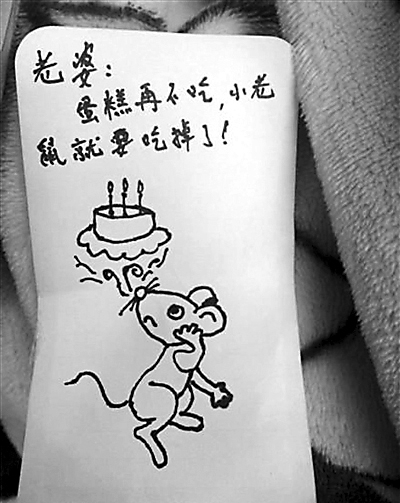 老婆:
蛋糕再不吃,小老
鼠就要吃掉了!